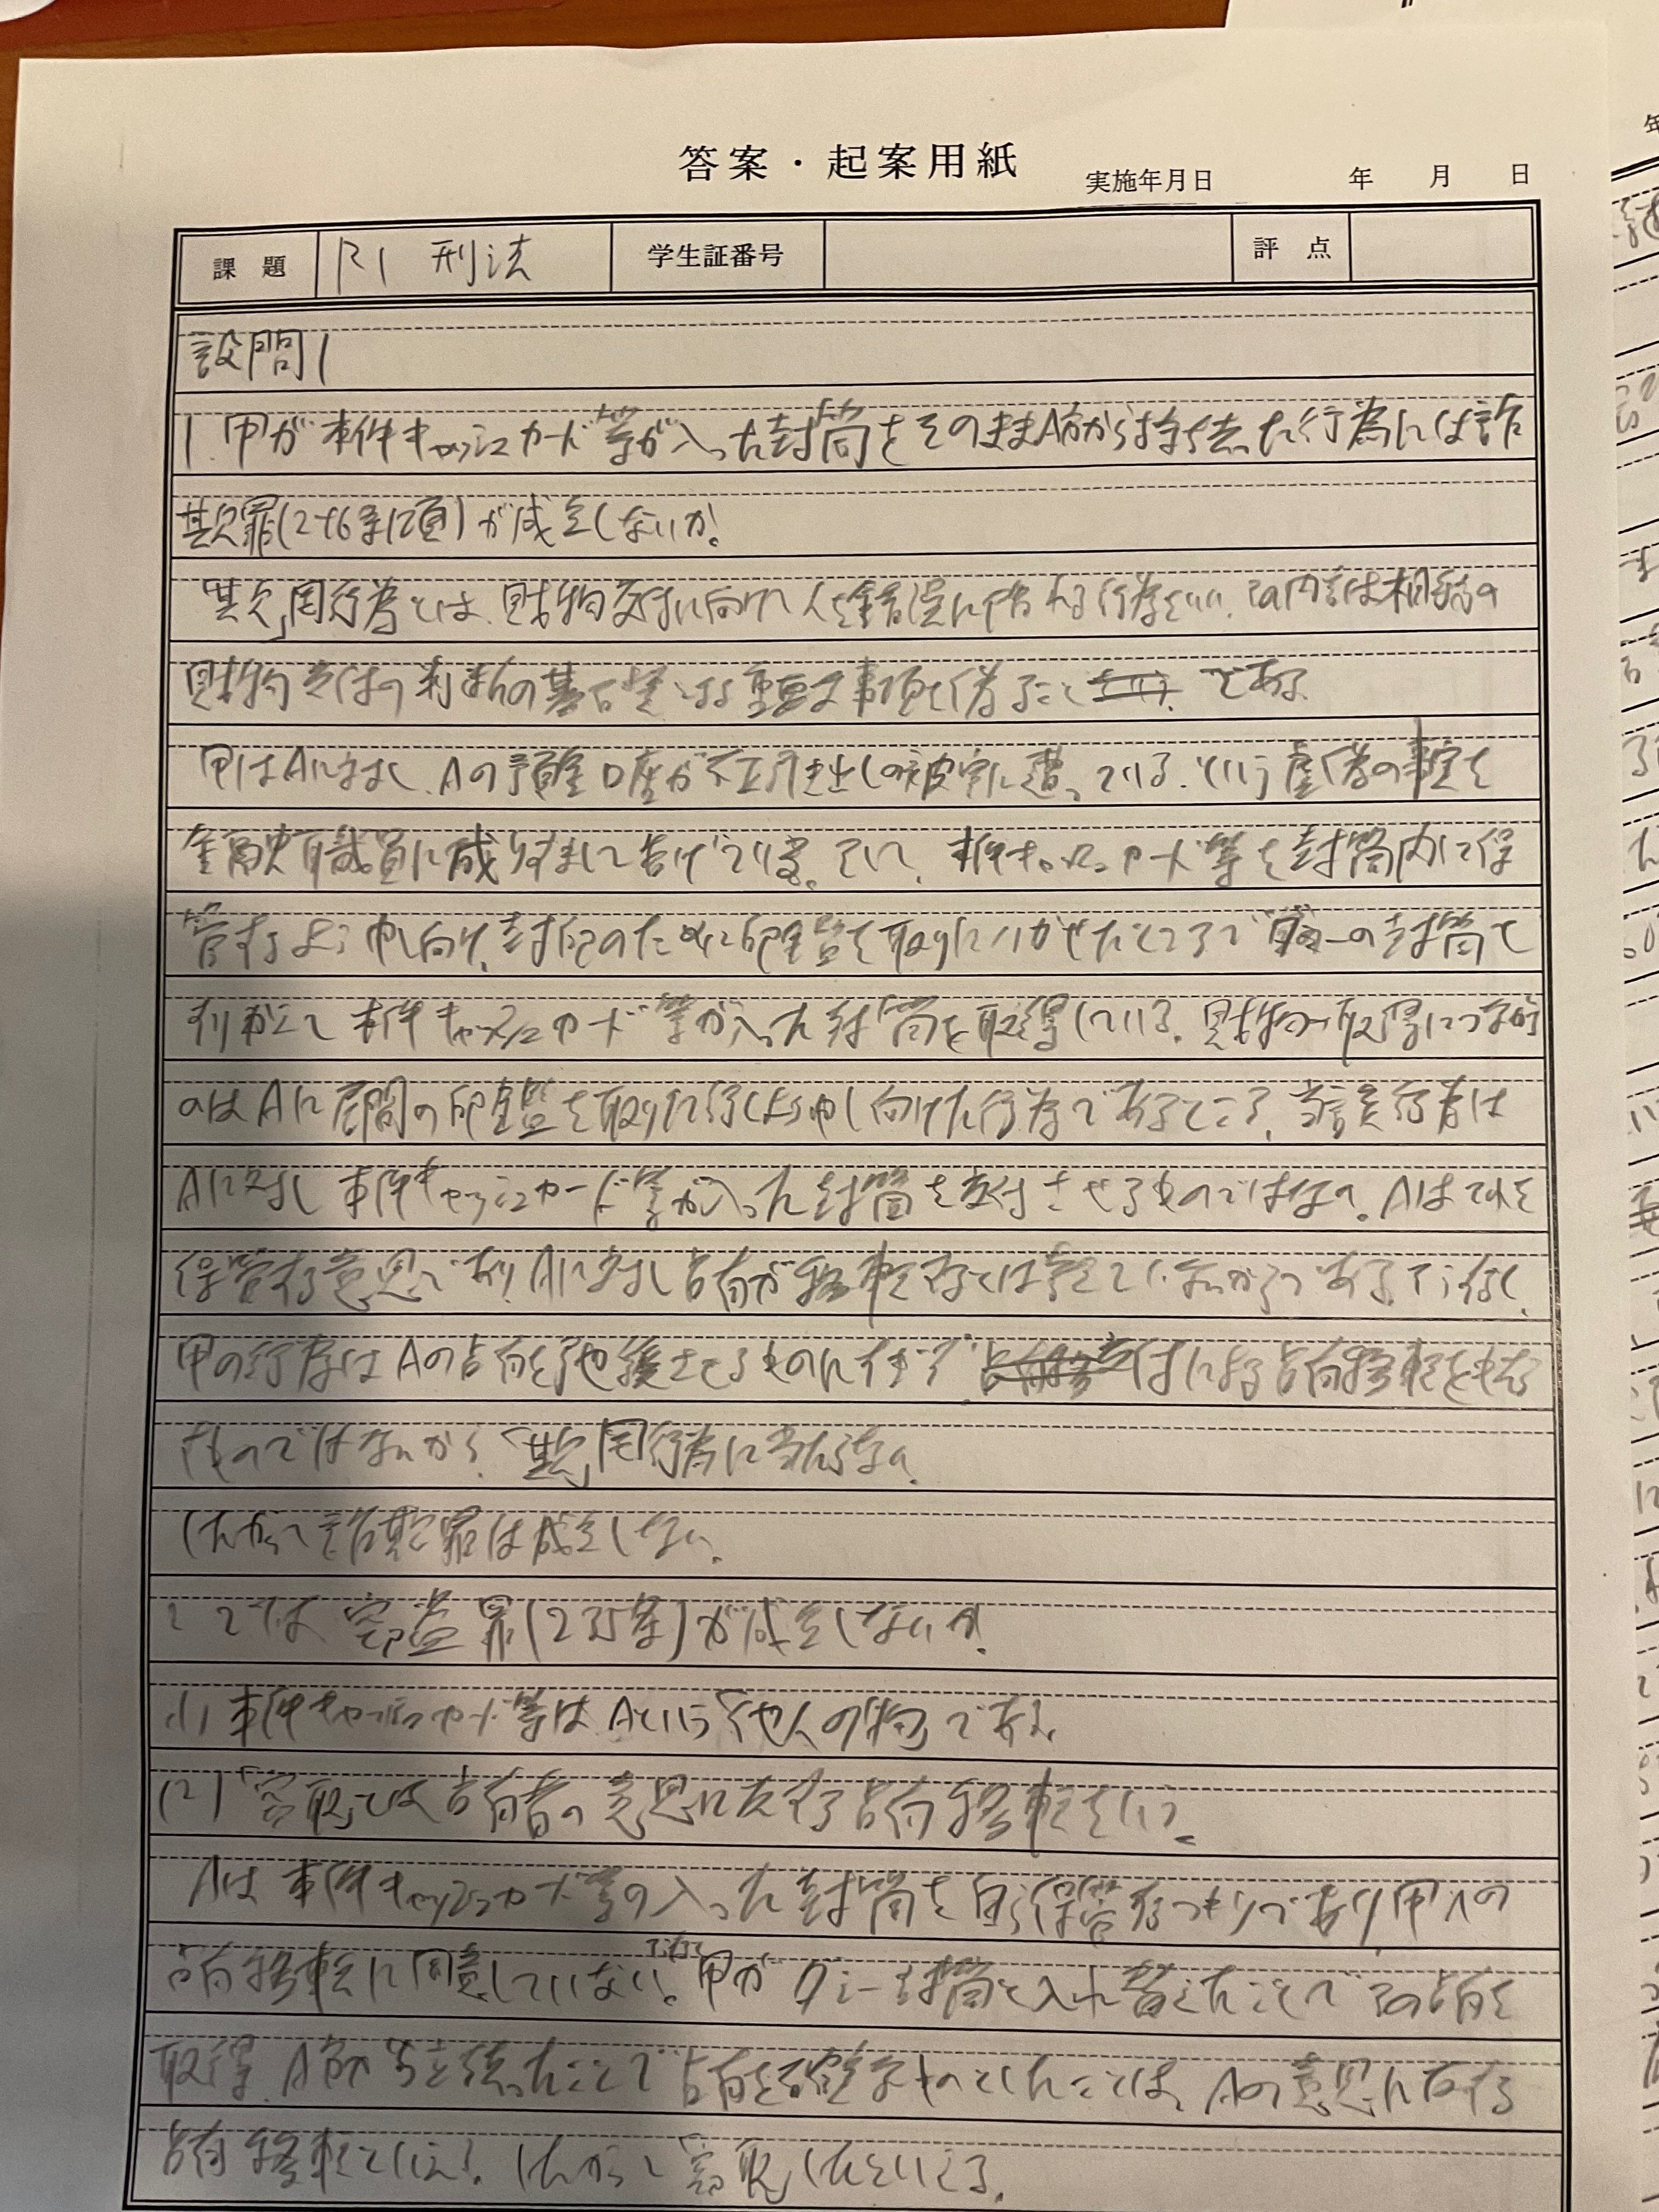 答案・起案用紙
実施年月日 年 月 日
課題 R1 刑法 学生証番号 評点
設問1
1. 甲が本件キャッシュカード等が入った封筒をそのままA方から持ち去った行為には詐
欺罪(246条1項)が成立しないか。
「欺」罔行為とは、財物交付に向けて人を錯誤に陥れる行為をいい、その内容は相手の
財物交付の判断の基礎となる重要な事項を偽ることである。
甲はAに対し、Aの預金口座が不正引き出しの被害に遭っている、という虚偽の事実を
金融庁職員に成りすまして告げている。そして、本件キャッシュカード等を封筒内に保
管するよう申し向け、封印のために印鑑を取りに行かせたところでダミーの封筒と
すりかえて本件キャッシュカード等が入った封筒を取得している。財物の取得につながる
のはAに居間の印鑑を取りに行くよう申し向けた行為であるところ、当該行為は
Aに対し本件キャッシュカード等が入った封筒を交付させるものではない。Aはそれを
保管する意思であり、Aに対し占有が移転するとは考えていないからである。そうすると、
甲の行為はAの占有を弛緩させるものにすぎず、交付による占有移転を
ものではないから、「欺」罔行為に当たらない。
したがって詐欺罪は成立しない。
2 では窃盗罪(235条)が成立しないか。
(1) 本件キャッシュカード等はAという「他人の物」である。
(2)「窃取」とは占有者の意思に反する占有移転をいう。
Aは本件キャッシュカード等の入った封筒を自ら保管するつもりであり、甲への
占有移転に同意していない。甲がダミー封筒と入れ替えたことでその占有を
取得、A方から立ち去ったことで占有を確実なものとしたことは、Aの意思に反する
占有移転といえる。したがって「窃取」したといえる。